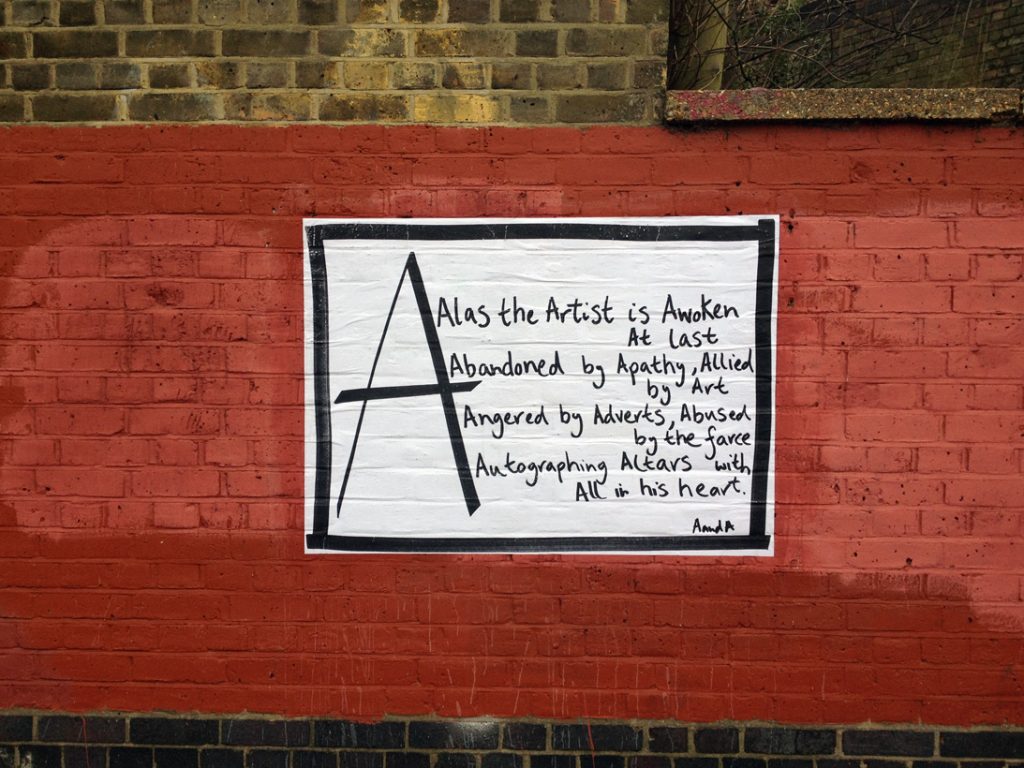 A
Alas the Artist is Awoken
At last
Abandoned by Apathy, Allied
by Art
Angered by Adverts, Abused
by the farce
Autographing Altars with
All in his heart.
AandA